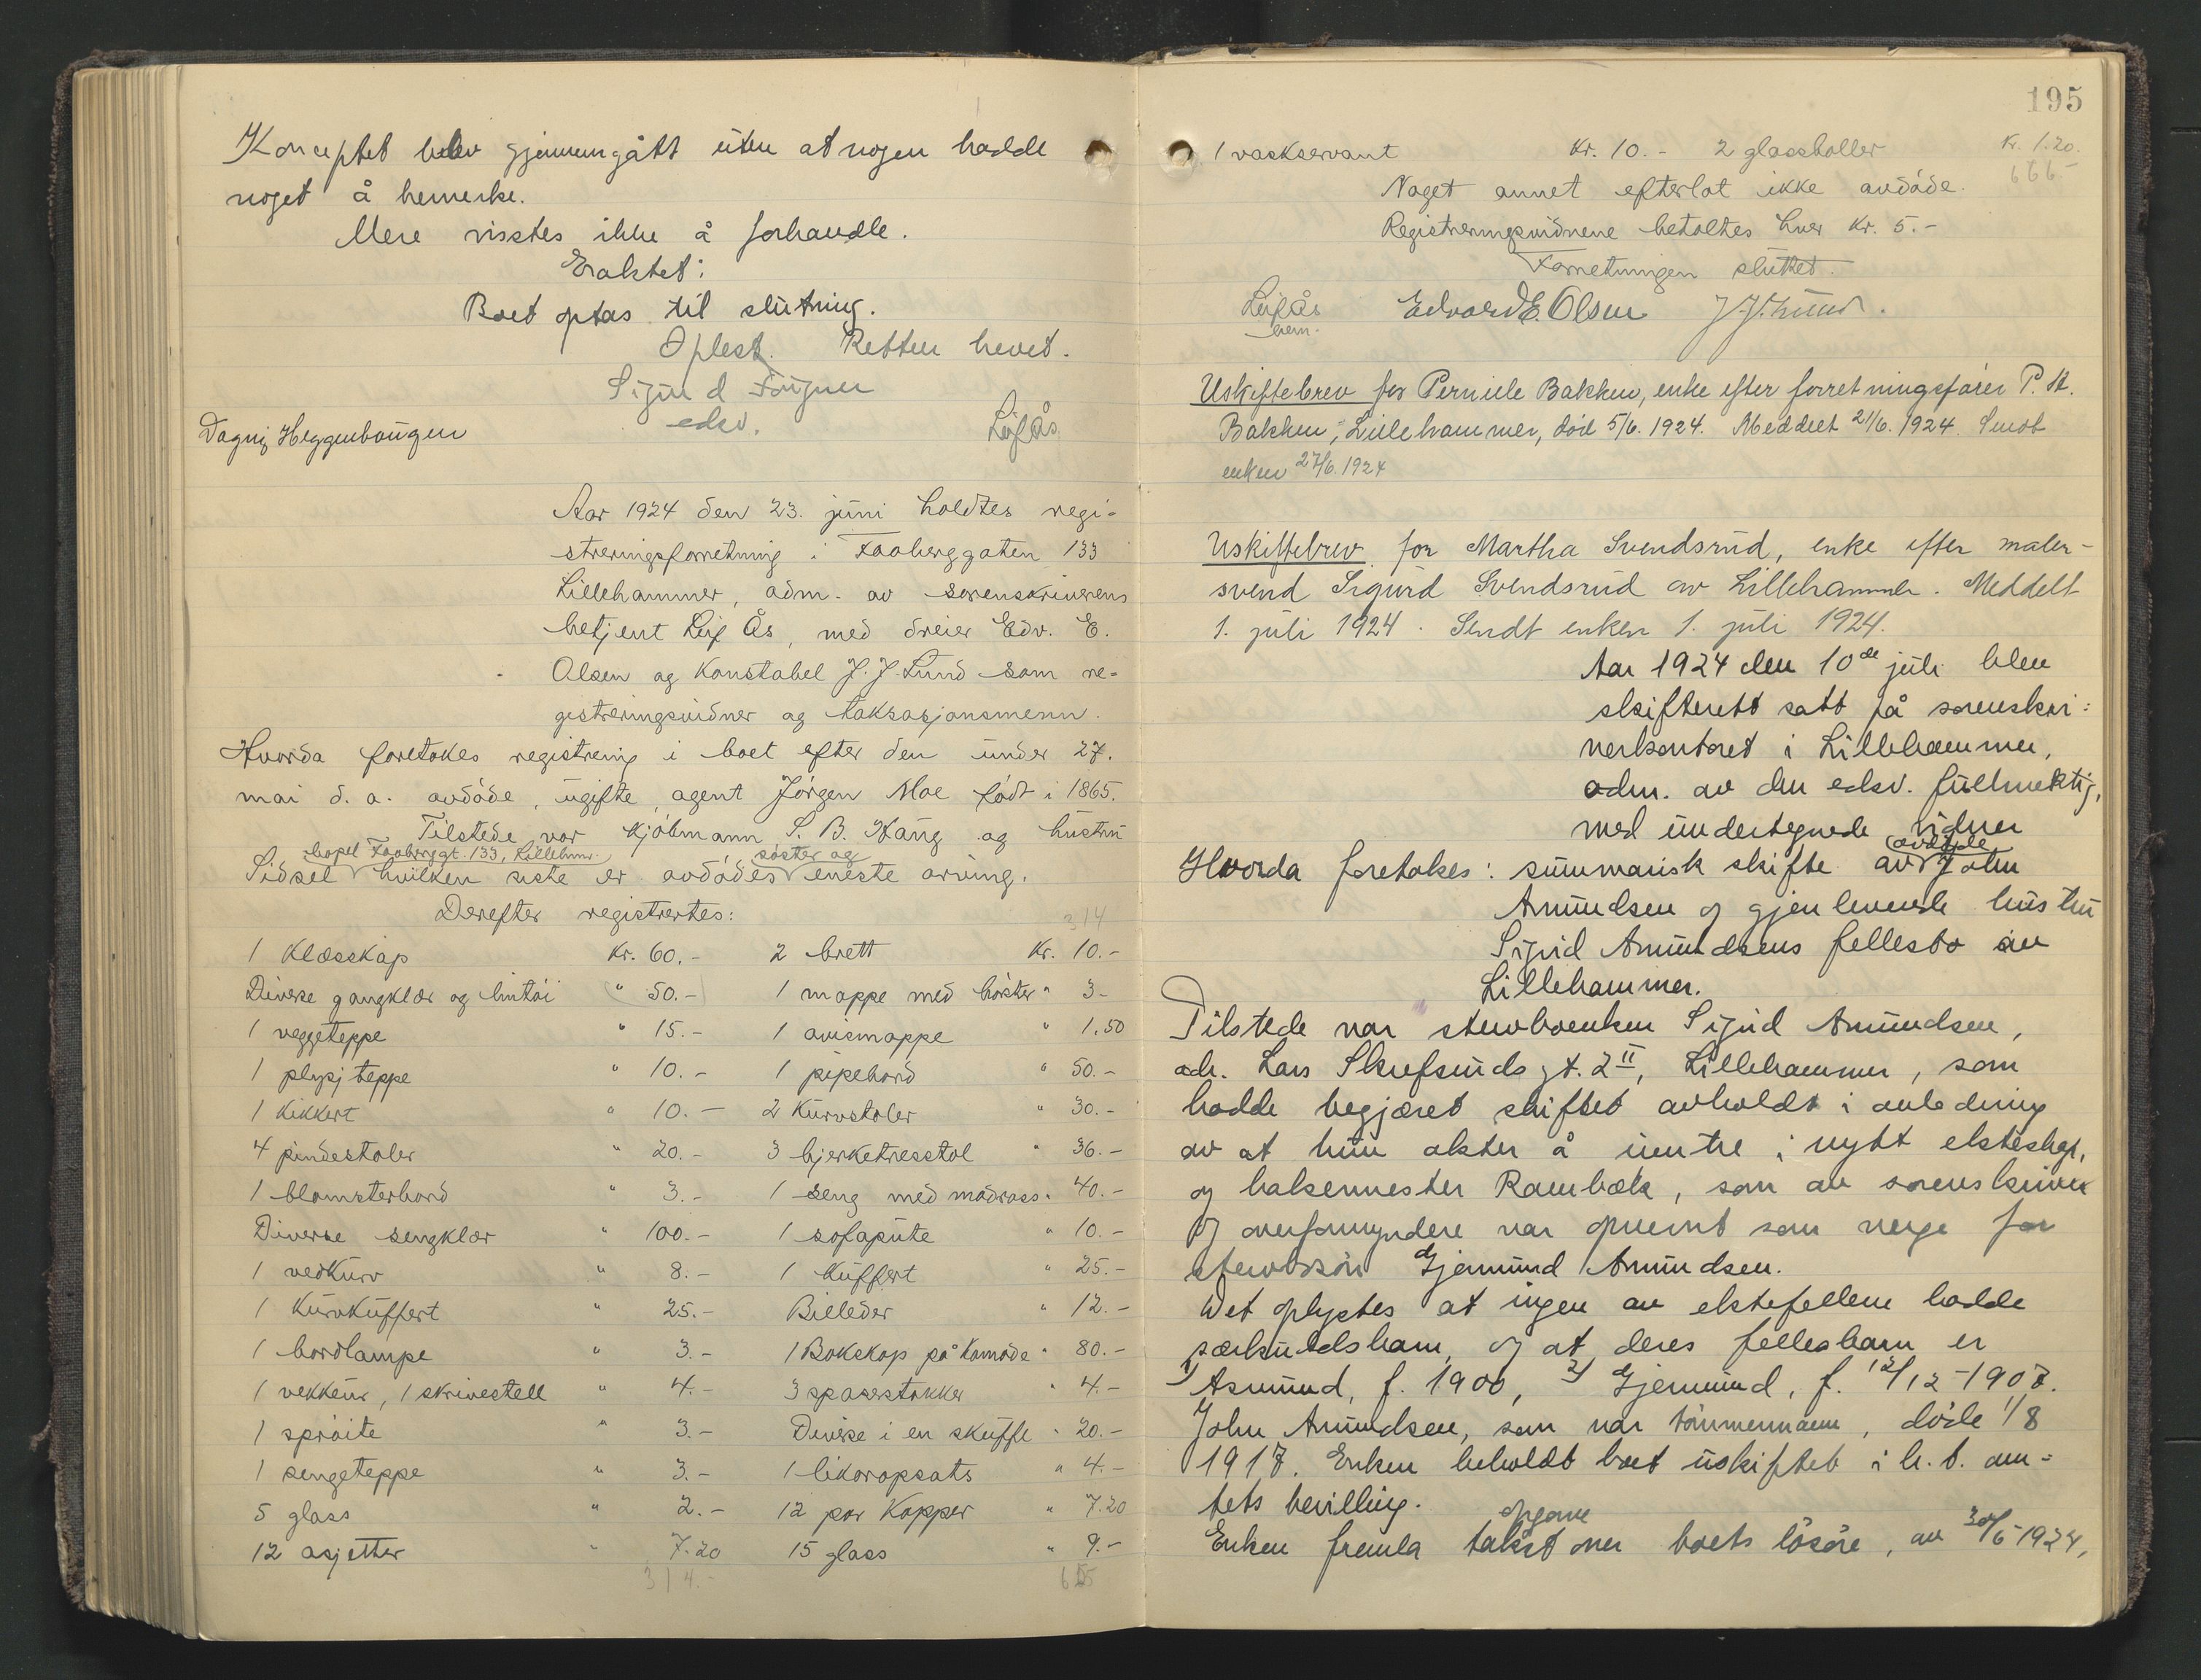 Konceptet blev gjennemgått uten at nogen hadde
noget å bemerke.
Mere visstes ikke å forhandle.
Eraktet:
Boet optas til slutning.
Oplest. Retten hevet.
Sigurd
edsv.
Leif Ås
Dagny Heggenhougen
Aar 1924 den 23. juni holdtes regi-
streringsforretning i Faaberggaten 133
Lillehammer, adm. av sorenskriverens
betjent Leif Ås, med dreier Edv. E.
Olsen og Konstabel J. J. Lund som re-
gistreringsvidner og taksasjonsmenn.
Hvorda foretokes registrering i boet efter den under 27.
mai d. a. avdøde, ugifte, agent Jörgen Moe født i 1865.
Tilstede var kjøbmann S. B. Haug og hustru
bopel Faabergt. 133, Lillehmr. søster og
Sidsel hvilken siste er avdødes eneste arving.
Derefter registrertes:
314
1 klæsskap Kr. 60.- 2 brett Kr. 10.-
Diverse gangklær og lintöi " 50.- 1 mappe med börster " 3-
1 veggeteppe " 15.- 1 avismappe " 1.50
1 plysj teppe " 10.- 1 pipebord " 50.-
1 kikkert " 10.- 2 Kurvstoler " 30.-
4 pindestoler " 20.- 3 bjerketresstol " 36.-
1 blomsterbord " 3.- 1 seng med madrass " 40.-
Diverse sengklær " 100.- 1 sofapute " 10.-
1 vedkurv " 8.- 1 Kuffert " 25.-
1 Kurvkuffert " 25.- Billeder " 12.-
1 bordlampe " 3.- 1 Bokskap på Komode " 80.-
1 vekkeur, 1 skrivestell " 4.- 3 spaserstokker " 4.-
1 spröite " 3.- Diverse i en skuffe " 20.-
1 sengeteppe " 3.- 1 likøropsats " 4.-
5 glass " 2.- 12 par Kopper " 7.20
12 asjetter " 7.20 15 glass " 9.-
314.-
195
1 vaskservant Kr. 10.- 2 glassboller Kr. 1.20.
666.-
Noget annet efterlot ikke avdøde.
Registreringsvidnene betaltes hver Kr. 5.-
Forretningen sluttet.
Leif Ås Edvard E. Olsen J. J. Lund.
Uskiftebrev for Pernille Bakken, enke efter forretningsfører P. H.
Bakken, Lillehammer, død 5/6. 1924. Meddelt 21/6. 1924. Sendt
enken 27/6. 1924
Uskiftebrev for Martha Svendsrud, enke efter maler-
svend Sigurd Svendsrud av Lillehammer. Meddelt
1. juli 1924. Sendt enken 1. juli 1924.
Aar 1924 den 10de juli blev
skifterett satt på sorenskri=
verkontoret i Lillehammer,
adm. av den edsv. fullmektig,
med undertegnede vidner
avdøde
Hvorda foretokes: summarisk skifte av John
Amundsen og gjenlevende hustru
Sigrid Amundsens fellesbo av
Lillehammer.
Tilstede var stervboenken Sigrid Amundsen,
adr. Lars Skrefsruds gt. 2 II, Lillehammer, som
hadde begjæret skiftet avholdt i anledning
av at hun akter å inntre i nytt ekteskap,
og baksermester Rambæk, som av sorenskriver
og overformyndere var opnevnt som verge for
stervbosön Gjermund Amundsen.
Det oplystes at ingen av ektefellene hadde
særkuldsbarn, og at deres fellesbarn er
1/ Asmund, f. 1900, 2/ Gjermund, f. 12/12-1907.
John Amundsen, som var tömmermann, döde 1/8
1917. Enken beholdt boet uskiftet i h. t. am=
tets bevilling.
opgave
Enken fremla takst over boets lösöre, av 30/6 1924,